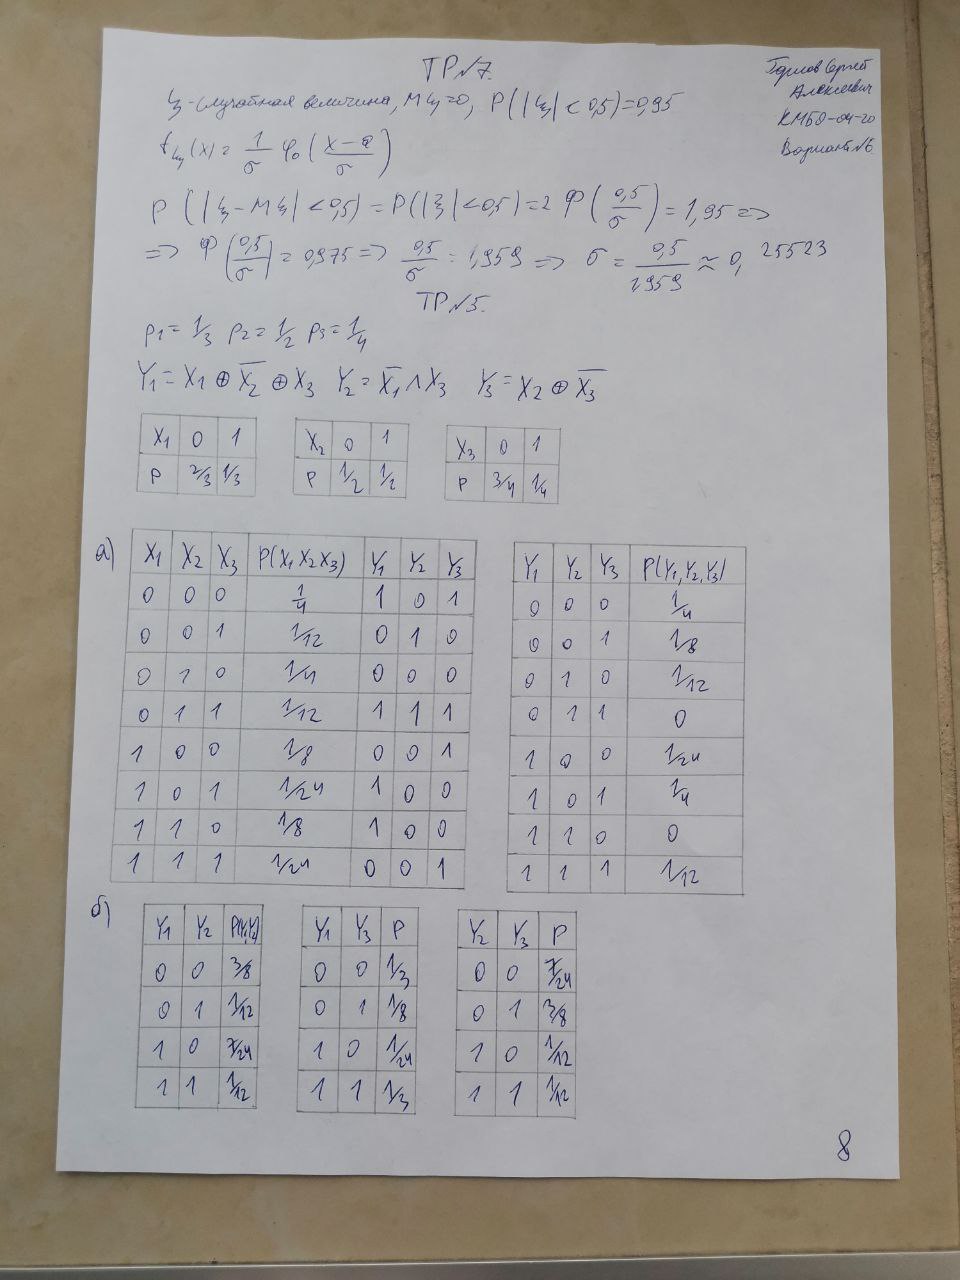 ТР№7.
Горлов Сергей
Алексеевич
КМБО-04-20
Вариант №6
ξ - случайная величина, Mξ=0, P(|ξ|<0,5)=0,95
fξ(x) = 1/σ φ₀((x-a)/σ)
P(|ξ-Mξ|<0,5) = P(|ξ|<0,5) = 2Ф(0,5/σ) = 1,95 =>
=> Ф(0,5/σ) = 0,975 => 0,5/σ = 1,959 => σ = 0,5/1,959 ≈ 0,25523
ТР№5.
p1 = 1/3 p2 = 1/2 p3 = 1/4
Y1 = X1 ⊕ X̅2 ⊕ X3 Y2 = X̅1 ∧ X3 Y3 = X2 ⊕ X̅3
X1 0 1
P 2/3 1/3
X2 0 1
P 1/2 1/2
X3 0 1
P 3/4 1/4
а)
X1 X2 X3 P(X1X2X3) Y1 Y2 Y3
0 0 0 1/4 1 0 1
0 0 1 1/12 0 1 0
0 1 0 1/4 0 0 0
0 1 1 1/12 1 1 1
1 0 0 1/8 0 0 1
1 0 1 1/24 1 0 0
1 1 0 1/8 1 0 0
1 1 1 1/24 0 0 1
Y1 Y2 Y3 P(Y1,Y2,Y3)
0 0 0 1/4
0 0 1 1/8
0 1 0 1/12
0 1 1 0
1 0 0 1/24
1 0 1 1/4
1 1 0 0
1 1 1 1/12
б)
Y1 Y2 P(Y1,Y2)
0 0 3/8
0 1 1/12
1 0 7/24
1 1 1/12
Y1 Y3 P
0 0 1/3
0 1 1/8
1 0 1/24
1 1 1/3
Y2 Y3 P
0 0 7/24
0 1 3/8
1 0 1/12
1 1 1/12
8